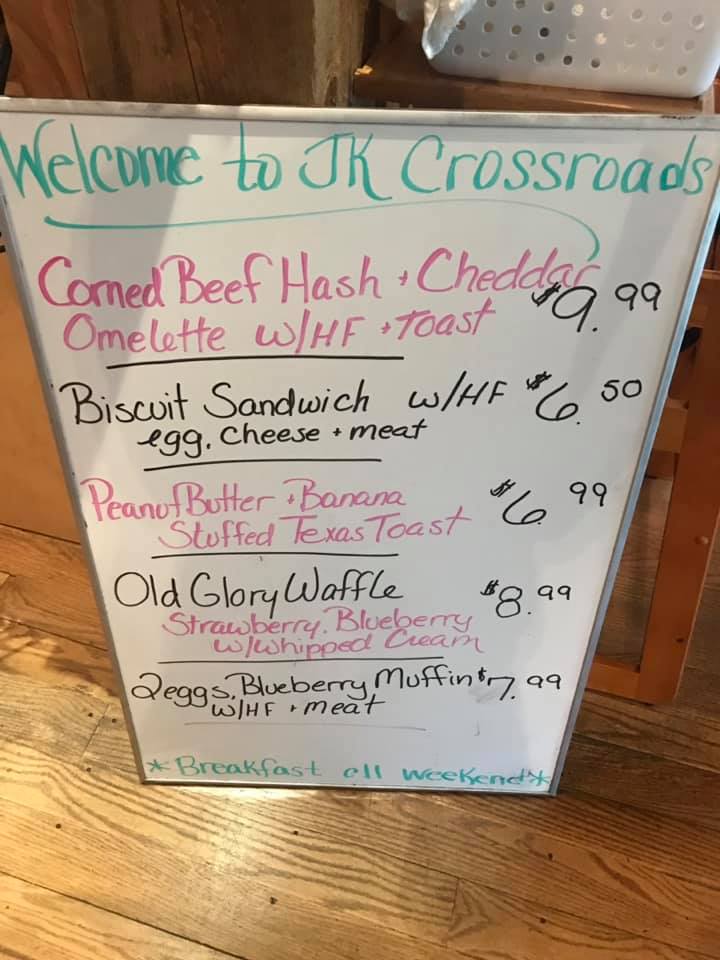 Welcome to JK Crossroads
Corned Beef Hash + Cheddar
Omelette w/HF + Toast $9.99
Biscuit Sandwich w/HF $6.50
egg, cheese + meat
Peanut Butter + Banana
Stuffed Texas Toast $6.99
Old Glory Waffle $8.99
Strawberry, Blueberry
w/whipped Cream
2 eggs, Blueberry Muffin $7.99
w/HF + meat
* Breakfast all weekend *